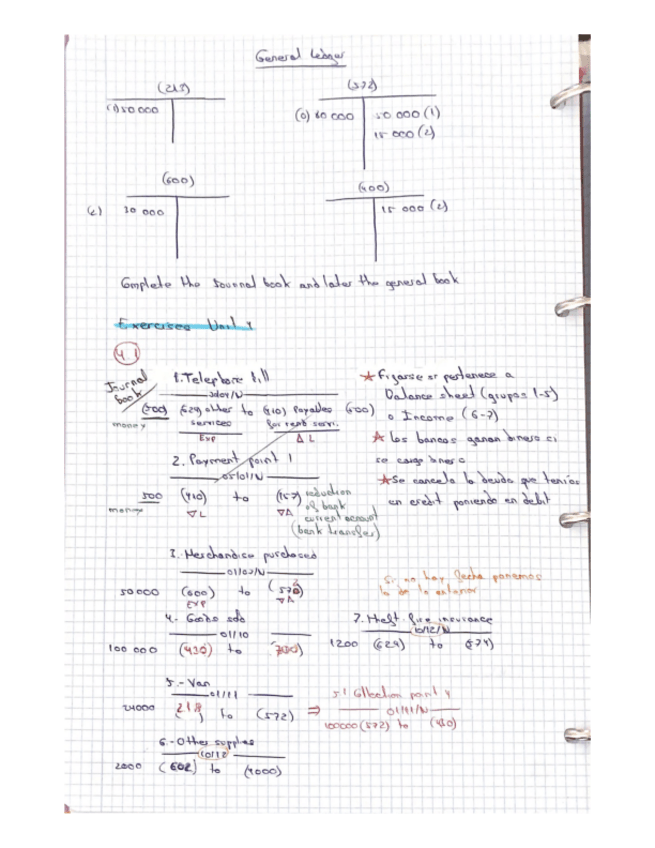 General Ledger
(218) (572)
(1) 50 000
(0) 60 000 50 000 (1)
15 000 (2)
(600) (400)
(2) 30 000 15 000 (2)
Complete the Journal book and later the general book
Exercises Unit 4
4.1
Journal
book
1. Telephone bill
(500) (629) other to (410) Payables (500)
money services for rend serv.
Exp Δ L
★ Fijarse si pertenece a
Balance sheet (grupos 1-5)
o Income (6-7)
★ Los bancos ganan dinero si
se carga dinero
★ Se cancela la deuda que tenías
en credit poniendo en debit
2. Payment point 1
05/01/N
500 (410) to (572) reduction
money ∇L ∇A of bank
current account
(bank transfer)
3. Merchandise purchased
01/02/N
50000 (600) to (570)
EXP ∇A
Si no hay fecha ponemos
la de la anterior
4.- Goods sold
01/10
100 000 (430) to (700)
7. Theft-fire insurance
10/12/N
1200 (624) to (574)
5.- Van
01/11
24000 218 to (572) ⇒
5! Collection point 4
01/11/N
100000 (572) to (430)
6.- Other supplies
10/12
2000 (602) to (4000)